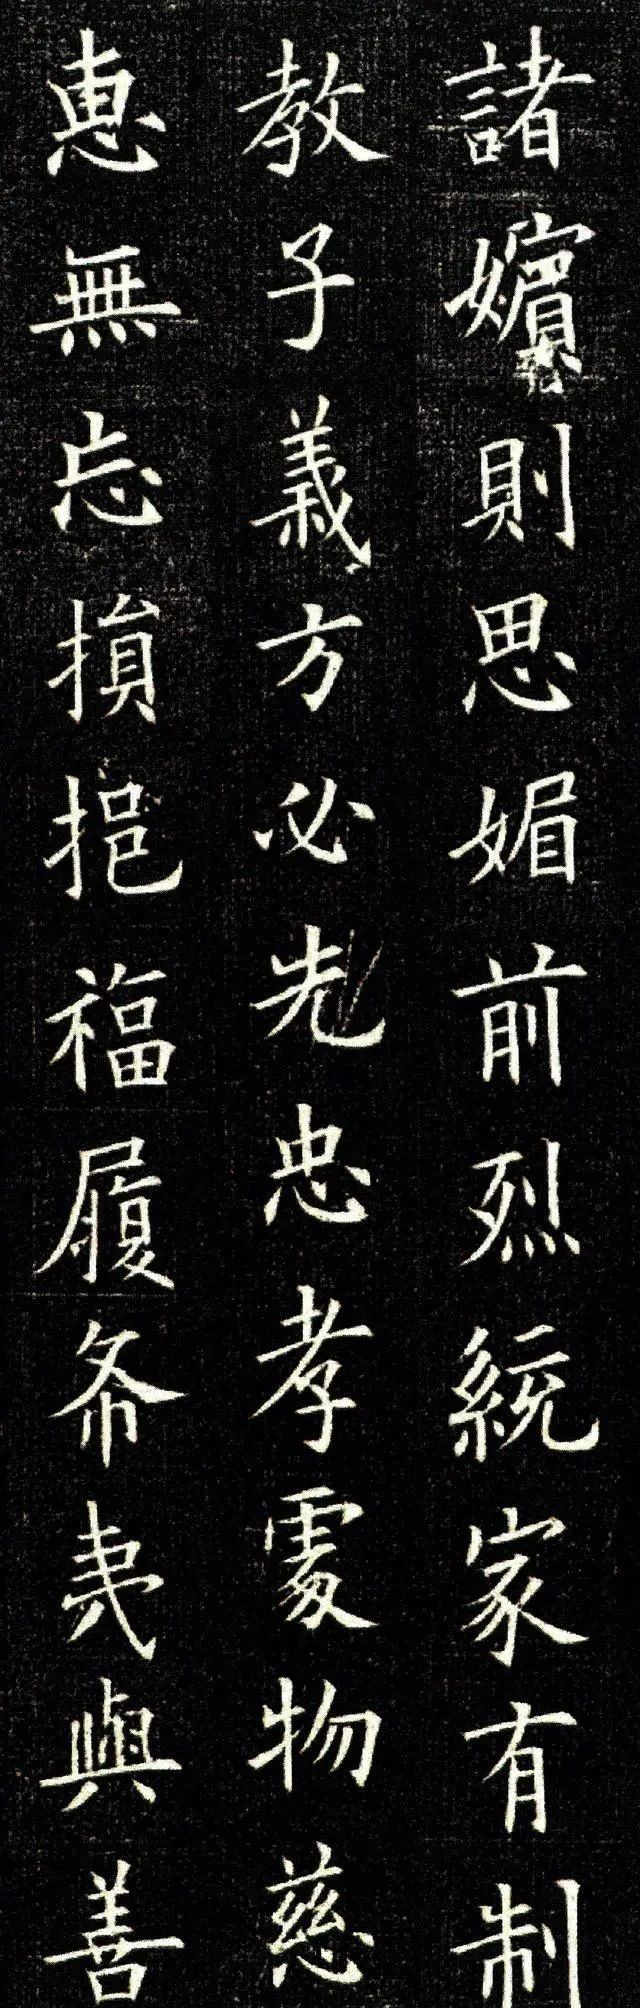 諸嬪則思媚前烈統家有制
教子義方必先忠孝處物慈
惠無忘損挹福履希夷與善